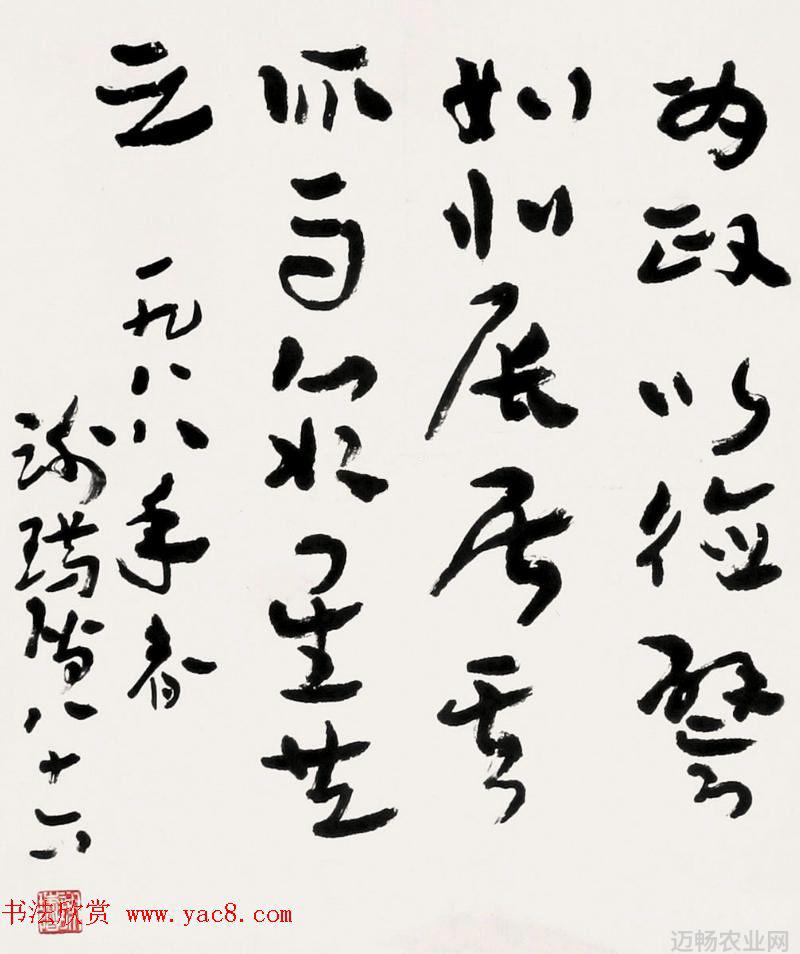 为政以德譬
如北辰居其
所而众星共
之 一九八八年春
谢瑞阶八十六
书法欣赏 www.yac8.com
迈畅农业网